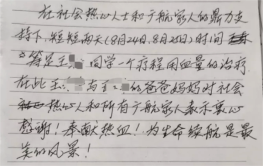 在社会热心人士和广航家人的鼎力支
持下，短短两天(8月24日,8月25日)时间
筹足王 同学一个疗程用血量的治疗
在此王 与王 的爸爸妈妈对社会
热心人和所有广航家人表示衷心
感谢！奉献热血！为生命续航是最
美的风景！